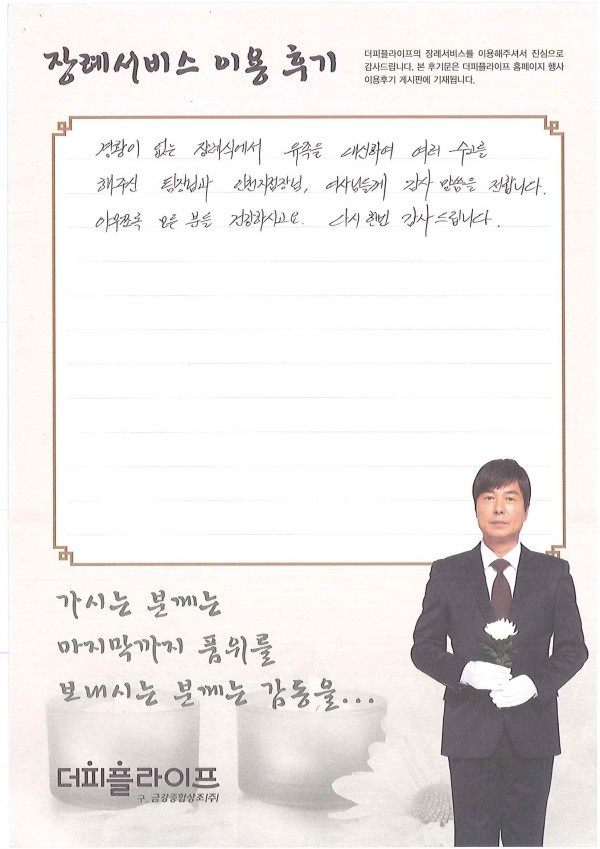 장례서비스 이용 후기
더피플라이프의 장례서비스를 이용해주셔서 진심으로
감사드립니다. 본 후기문은 더피플라이프 홈페이지 행사
이용후기 게시판에 기재됩니다.
경황이 없는 장례식에서 유족을 대신하여 여러 수고를
해주신 팀장님과 인천지점장님, 여사님들게 감사 말씀을 전합니다.
아무쪼록 모든 분들 건강하시고요. 다시 한번 감사드립니다.
가시는 분께는
마지막까지 품위를
보내시는 분께는 감동을...
더피플라이프
구. 금강종합상조(주)